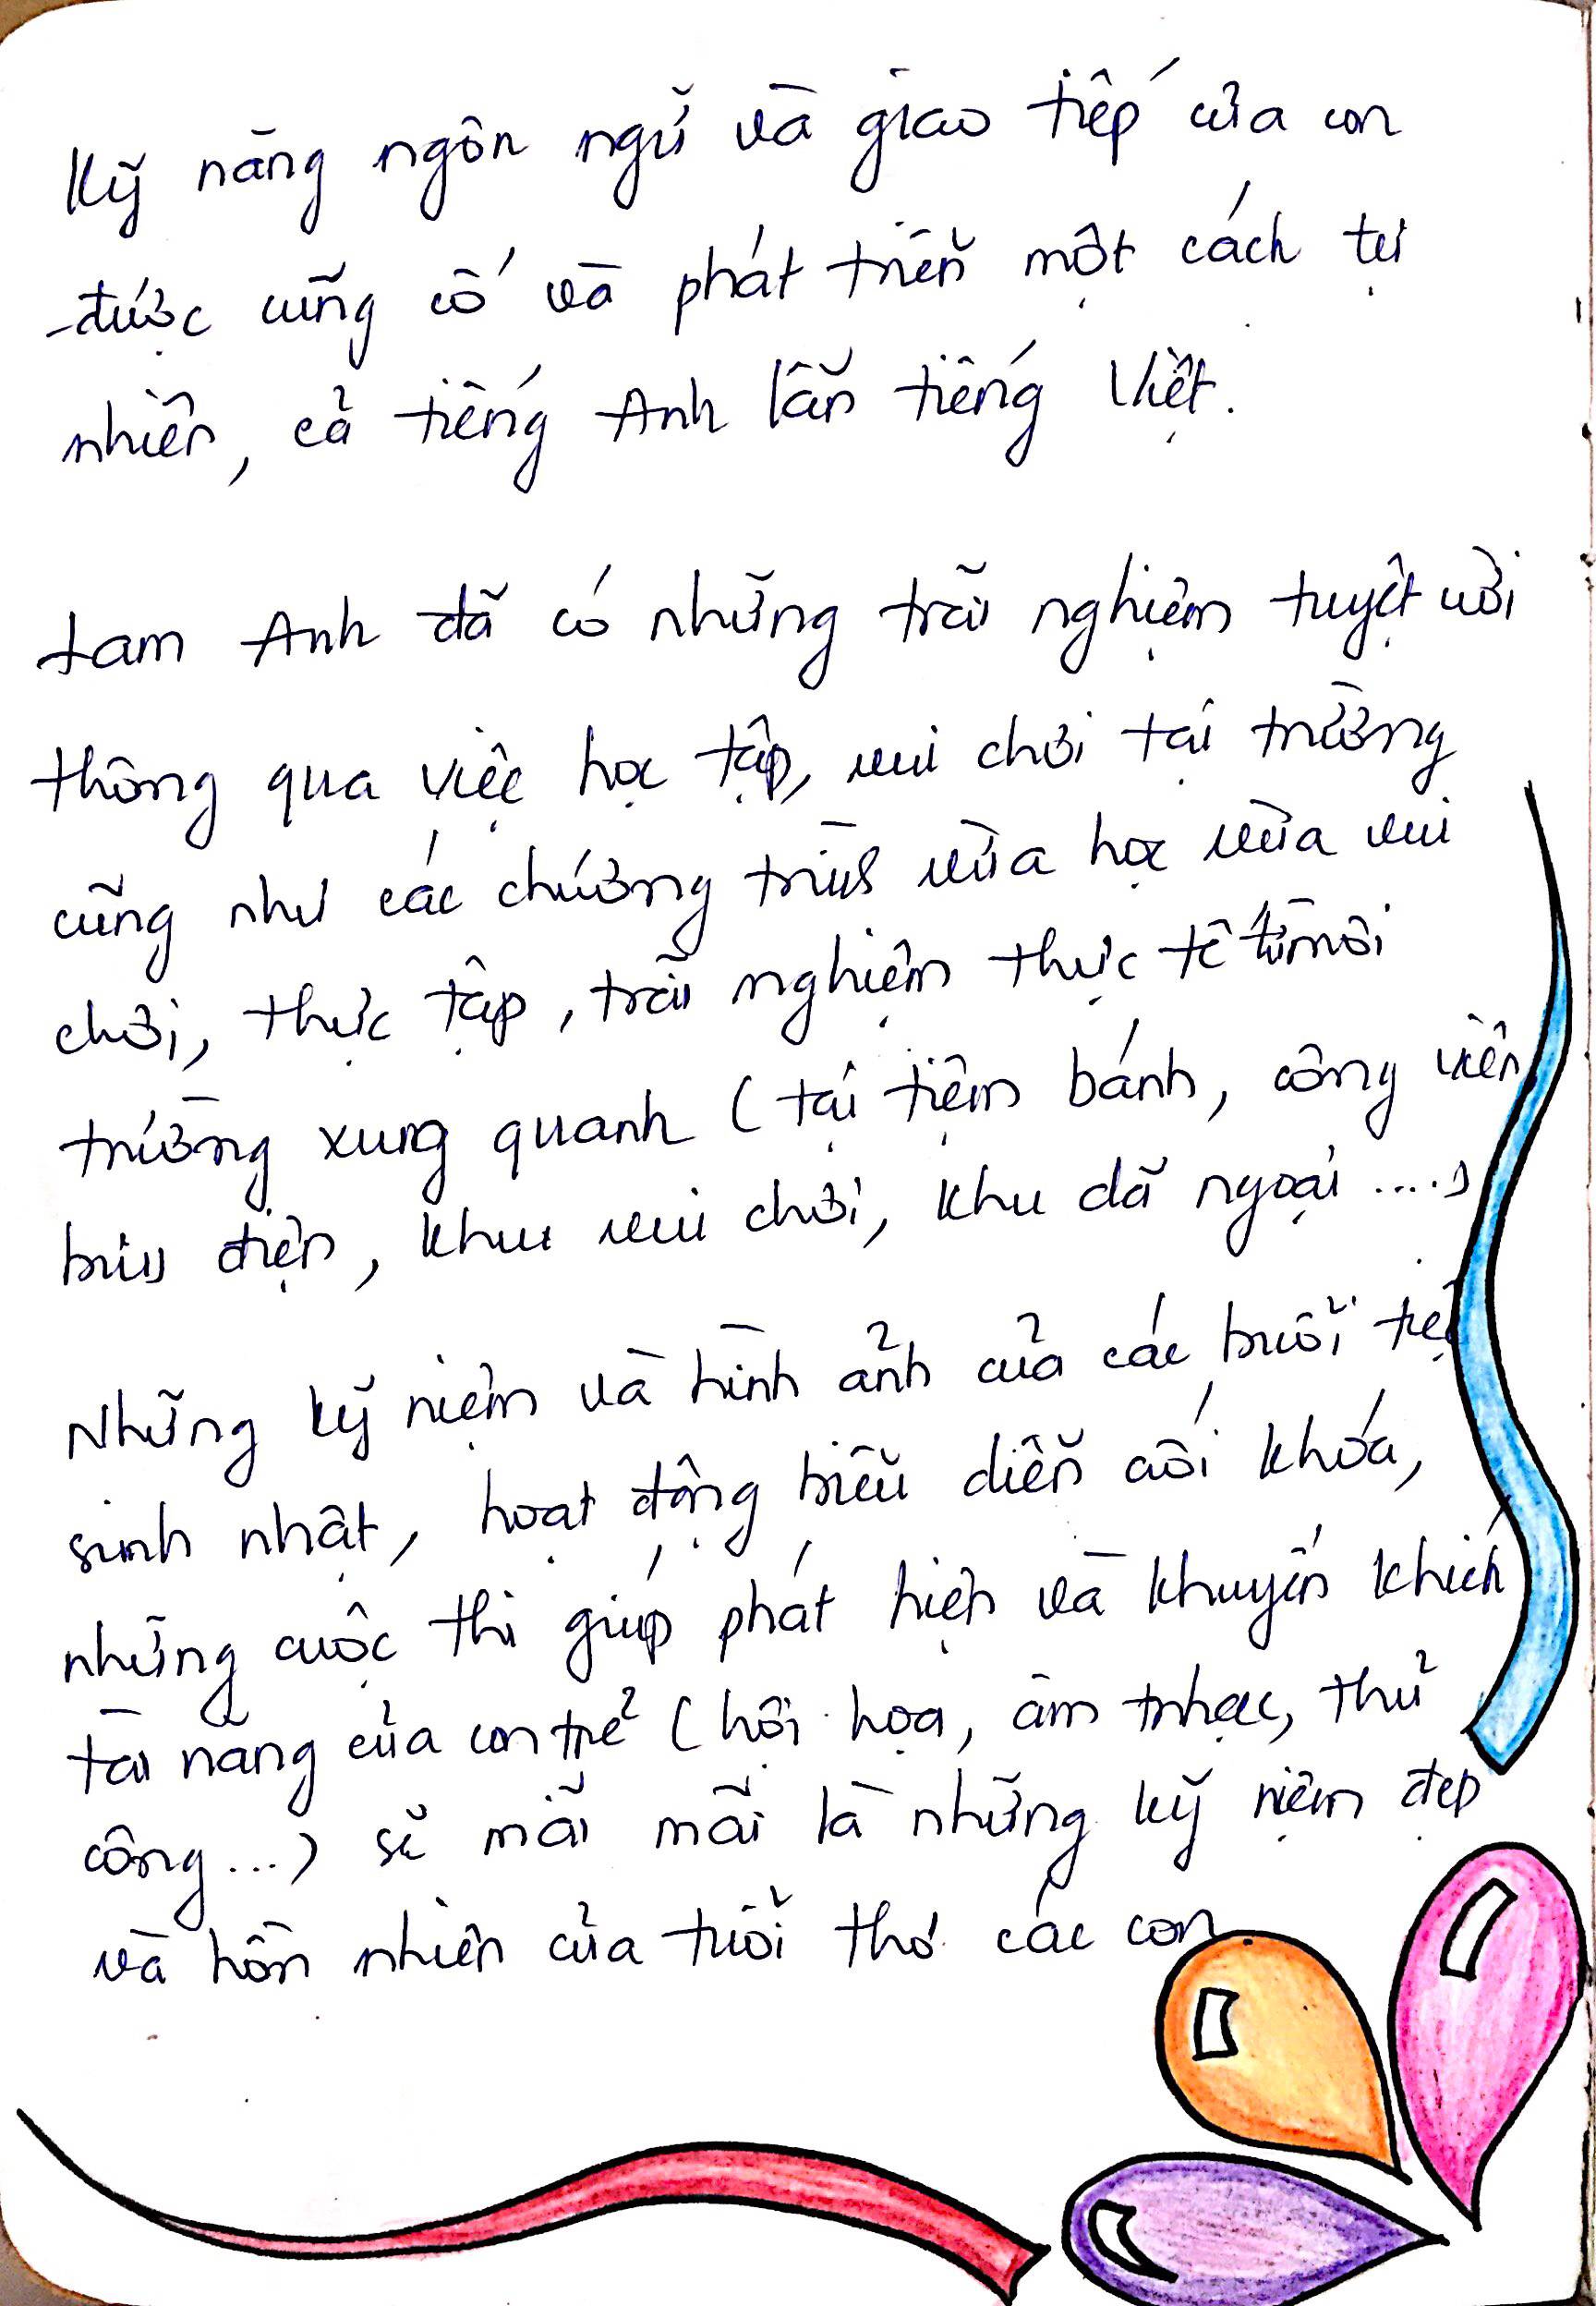 Kỹ năng ngôn ngữ và giao tiếp của con
được cũng cố và phát triễn một cách tự
nhiên, cả tiếng Anh lẫn tiếng Việt.
Tam Anh đã có những trãi nghiệm tuyệt vời
thông qua việc học tập, vui chơi tại trường
cũng như các chương trình vừa học vừa vui
chơi, thực tập, trãi nghiệm thực tê từ môi
trường xung quanh (tại tiệm bánh, công viên,
bưu điện, khu vui chơi, khu dã ngoại ....)
Những kỹ niệm và hình ảnh của các buỗi
sinh nhật, hoạt động biễu diễn cối khóa,
những cuộc thi giúp phát hiện và khuyến khích
tài nang của con trẻ (hội họa, âm nhạc, thủ
công...) sẽ mãi mãi là những kỹ niệm đẹp
và hồn nhiên của tuỗi thơ các con.